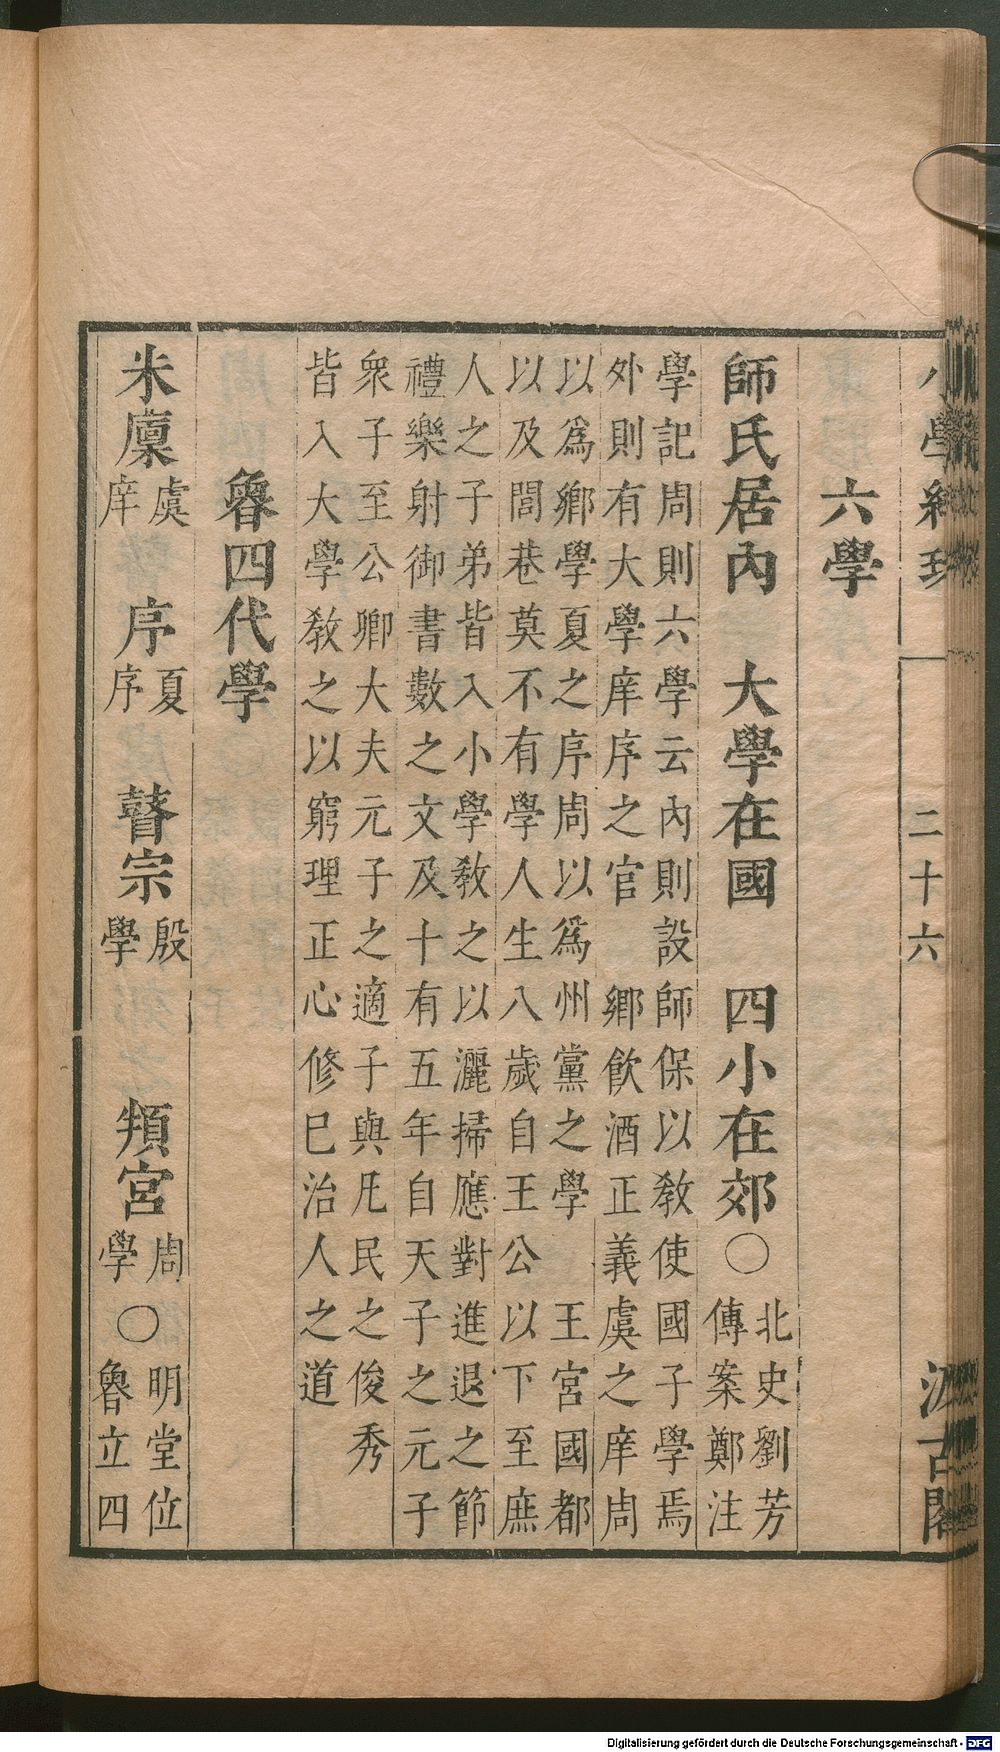 小學紺珠 二十六 汲古閣
六學
師氏居內 大學在國 四小在郊〇北史劉芳
傳案鄭注
學記周則六學云內則設師保以敎使國子學焉
外則有大學庠序之官 鄉飲酒正義虞之庠周
以爲鄉學夏之序周以爲州黨之學 王宮國都
以及閭巷莫不有學人生八歲自王公以下至庶
人之子弟皆入小學敎之以灑掃應對進退之節
禮樂射御書數之文及十有五年自天子之元子
衆子至公卿大夫元子之適子與凡民之俊秀
皆入大學敎之以窮理正心修已治人之道
魯四代學
米廩虞庠 序夏序 瞽宗殷學 頖宮周學〇明堂位
魯立四
Digitalisierung gefördert durch die Deutsche Forschungsgemeinschaft - DFG